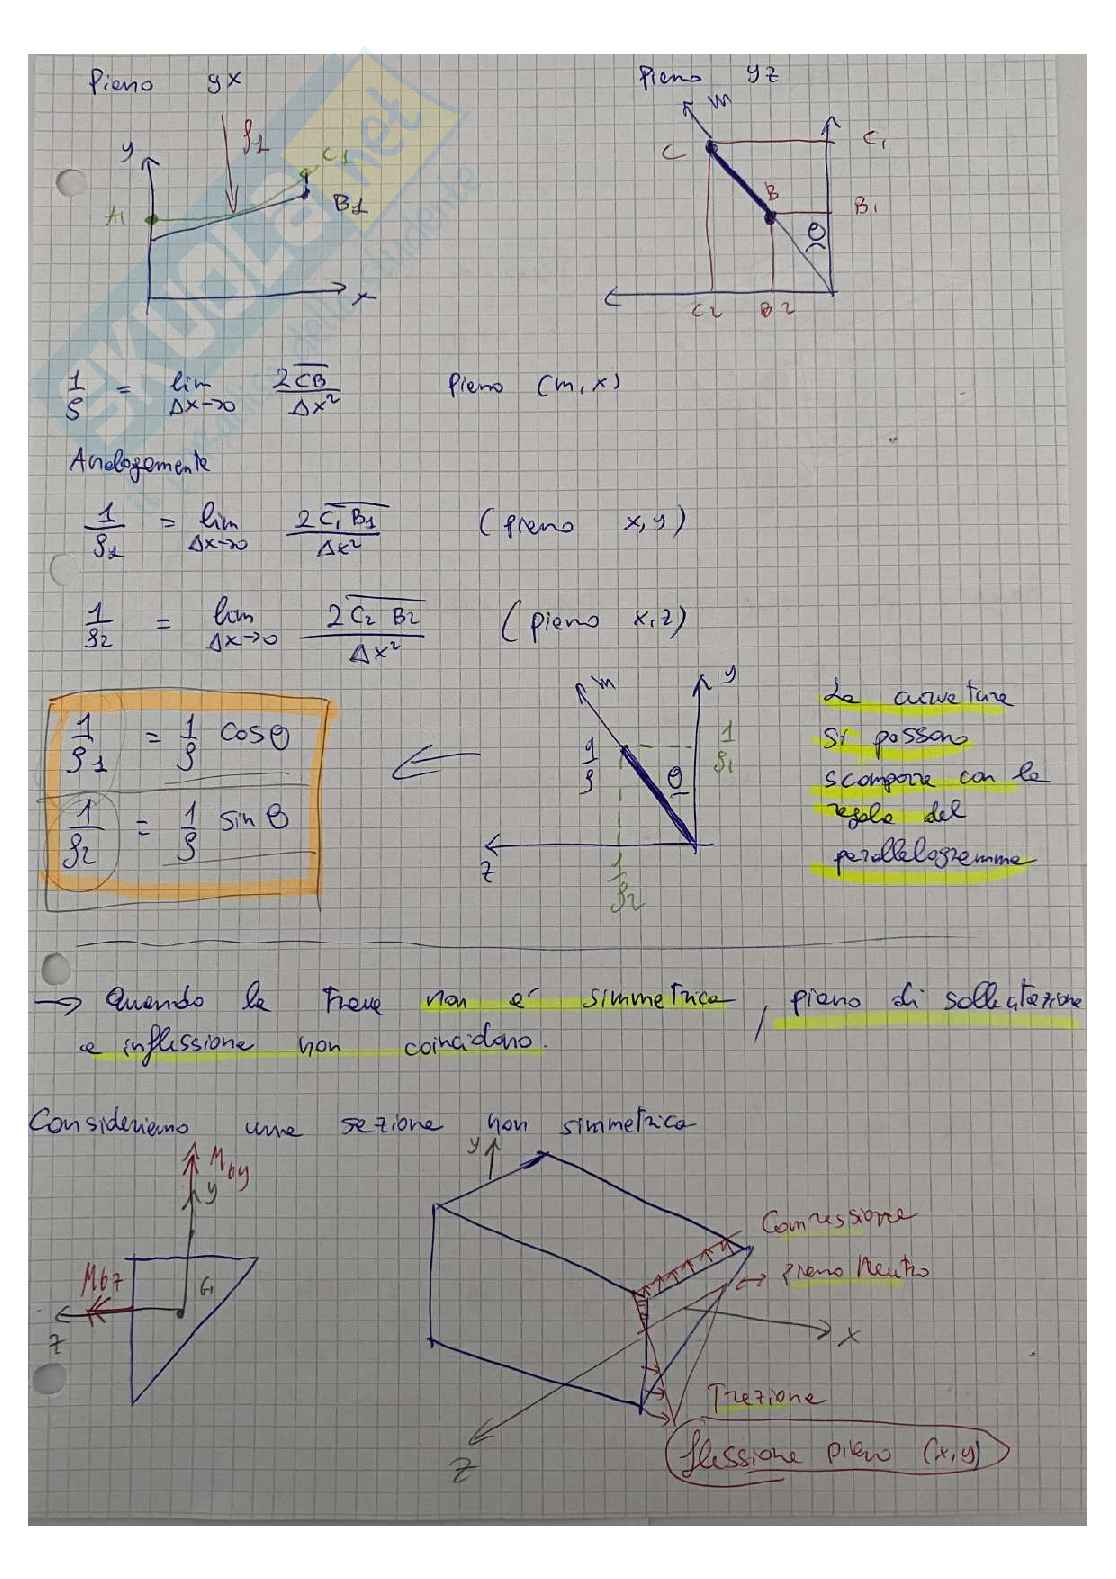 Piano yx
Piano yz
y
ρ1
C1
A1
B1
x
m
C
C1
B
B1
θ
C2
B2
1/ρ = lim Δx→0 2CB/Δx² Piano (m,x)
Analogamente
1/ρ1 = lim Δx→0 2C1B1/Δx² (piano x,y)
1/ρ2 = lim Δx→0 2C2B2/Δx² (piano x,z)
1/ρ1 = 1/ρ cosθ
1/ρ2 = 1/ρ sinθ
m
y
1/ρ
1/ρ1
θ
z
1/ρ2
La curvatura
si possono
scomporre con la
regola del
parallelogramma
→ Quando la Trave non è simmetrica, piano di sollecitazione
e inflessione non coincidono.
Consideriamo una sezione non simmetrica
Mby
y
Mbz
G
z
y
Compressione
piano Neutro
x
Trazione
z
flessione piano (x,y)
SKUOLA.net